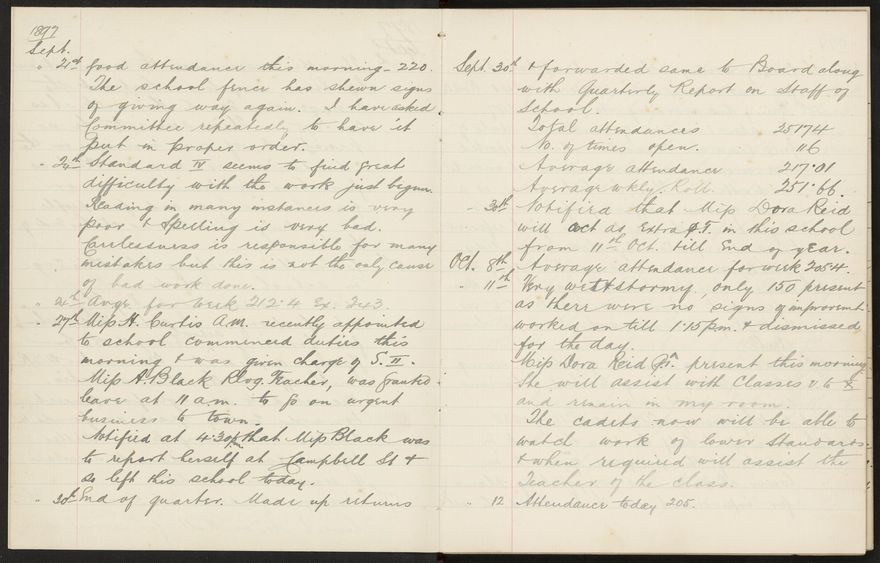 1897
Sept.
" 21st Good attendance this morning - 220.
The school fence has shewn signs
of giving way again. I have asked
Committee repeatedly to have it
put in proper order.
" 24th Standard IV seems to find great
difficulty with the work just begun.
Reading in many instances is very
poor & Spelling is very bad.
Carelessness is responsible for many
mistakes but this is not the only cause
of bad work done.
" 24th Avge for Week 212.4 Ex. 243.
" 27th Miss H. Curtis A.M. recently appointed
to school commenced duties this
morning & was given charge of S. II.
Miss A. Black Rlvg. Teacher, was granted
leave at 11 a.m. to go on urgent
business to town.
Notified at 4.30 p.m. that Miss Black was
to report herself at Campbell St &
so left this school today.
" 30th End of quarter. Made up returns
Sept. 30th & forwarded same to Board along
with Quarterly Report on Staff of
School.
Total attendances 25174
No. of times open. 116
Average attendance 217.01
Average wkly. Roll 251.66.
" 30th Notified that Miss Dora Reid
will act as Extra P.T. in this school
from 11th Oct. till End of year.
Oct. 8th Average attendance for week 205.4.
" 11th Very wet & stormy, only 150 present
as there were no signs of improvemt
worked on till 1.15 p.m. & dismissed
for the day.
Miss Dora Reid present this morning
She will assist with Classes
and remain in my room.
The cadets now will be able to
watch work of lower Standards
& when required will assist the
Teacher of the class.
" 12 Attendance today 205.